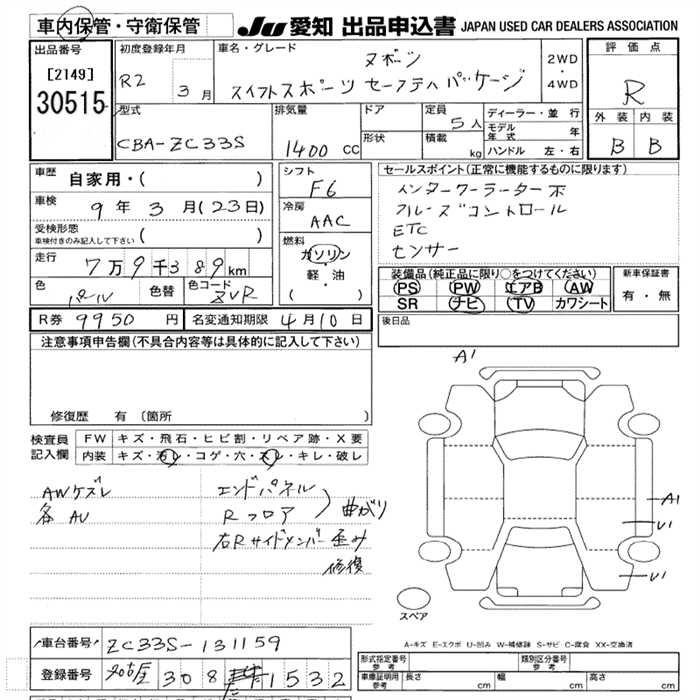 車内保管・守衛保管
JU 愛知 出品申込書 JAPAN USED CAR DEALERS ASSOCIATION
出品番号
[2149]
30515
初度登録年月
R2 3月
車名・グレード
スポーツ
スイフトスポーツ セーフティパッケージ
2WD
・
4WD
評価点
R
外装 内装
B B
型式
CBA-ZC33S
排気量
1400 CC
ドア
形状
定員
5人
積載
kg
ディーラー・並行
モデル年式 年
ハンドル 左・右
車歴
自家用・( )
車検
9年3月(23日)
受検形態
車検付きのみ記入して下さい ( )
走行
7万9千389km
色
パール
色替
色コード
ZVR
シフト
F6
冷房
AAC
燃料
ガソリン
軽・油
( )
セールスポイント(正常に機能するものに限ります)
インタークーラーター ホ
クルーズコントロール
ETC
センサー
装備品(純正品に限り○をつけてください)
PS PW エアB AW
SR ナビ TV カワシート
新車保証書
有・無
R券 9950 円
名変通知期限 4月10日
後日品
注意事項申告欄(不具合内容等は具体的に記入して下さい)
修復歴 有(箇所 )
検査員記入欄
FW キズ・飛石・ヒビ割・リペア跡・X要
内装 キズ・汚レ・コゲ・穴・スレ・キレ・破レ
AWケズレ
各AU
エンドパネル
Rフロア
曲がり
右Rサイドメンバー 歪み
修復
A1
A1
U1
U1
スペア
A-キズ E-エクボ U-凹み W-補修跡 S-サビ C-腐食 XX-交換済
車台番号 ZC33S-131159
登録番号 名古屋 308 1532
形式指定番号
参考
類別区分番号
参考
車庫証明用
参考
長さ cm
幅 cm
高さ cm